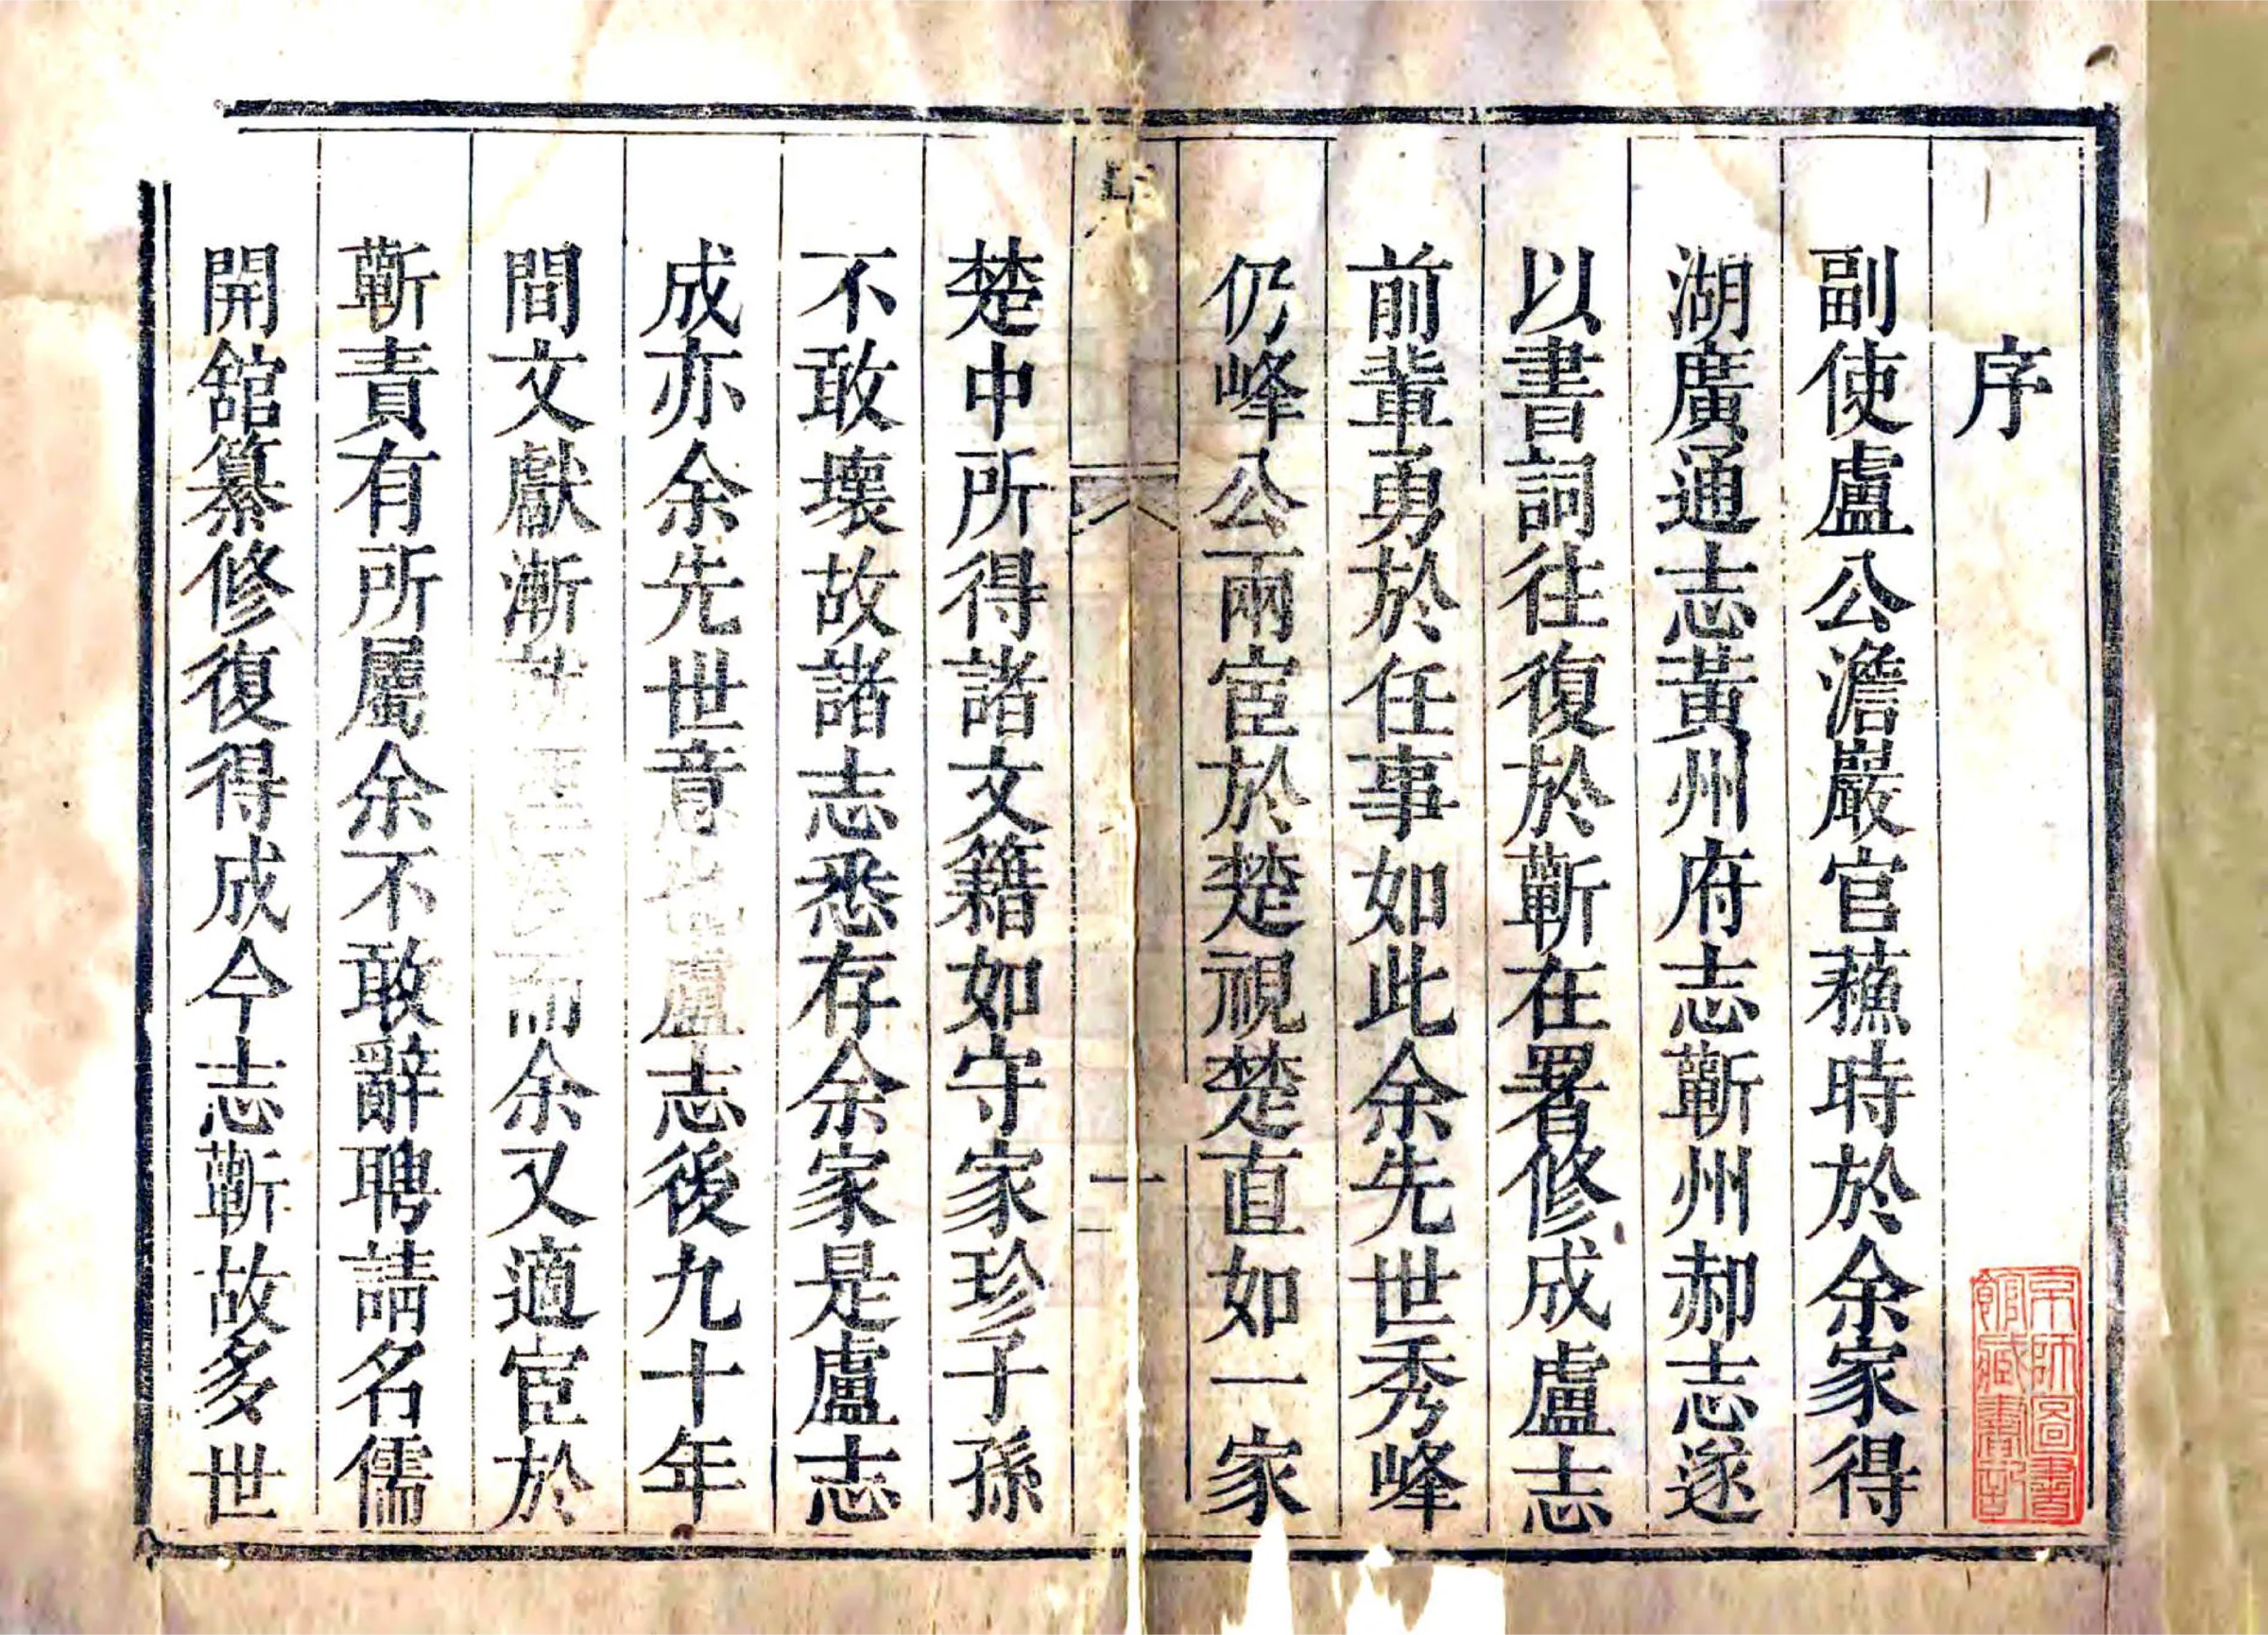 序
副使盧公澹巖官蘓時於余家得
湖廣通志黃州府志蘄州郝志遂
以書詞往復於蘄在署修成盧志
前輩勇於任事如此余先世秀峰
仍峰公兩宦於楚視楚直如一家
序
一
楚中所得諸文籍如守家珍子孫
不敢壞故諸志悉存余家是盧志
成亦余先世意也盧志後九十年
間文獻漸而余又適宦於
蘄責有所屬余不敢辭聘請名儒
開舘纂修復得成今志蘄故多世
京師圖書館藏書記